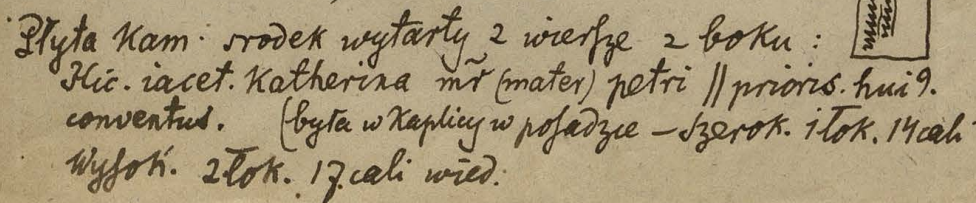 Płyta Kam. srodek wytarty 2 wiersze z boku :
Hic. iacet. Katherina mr̃ (mater) petri || prioris. hui9.
conventus. (była w Kaplicy w posadzce – szerok. 1 łok. 14 cali
Wysok. 2 łok. 17. cali wied.